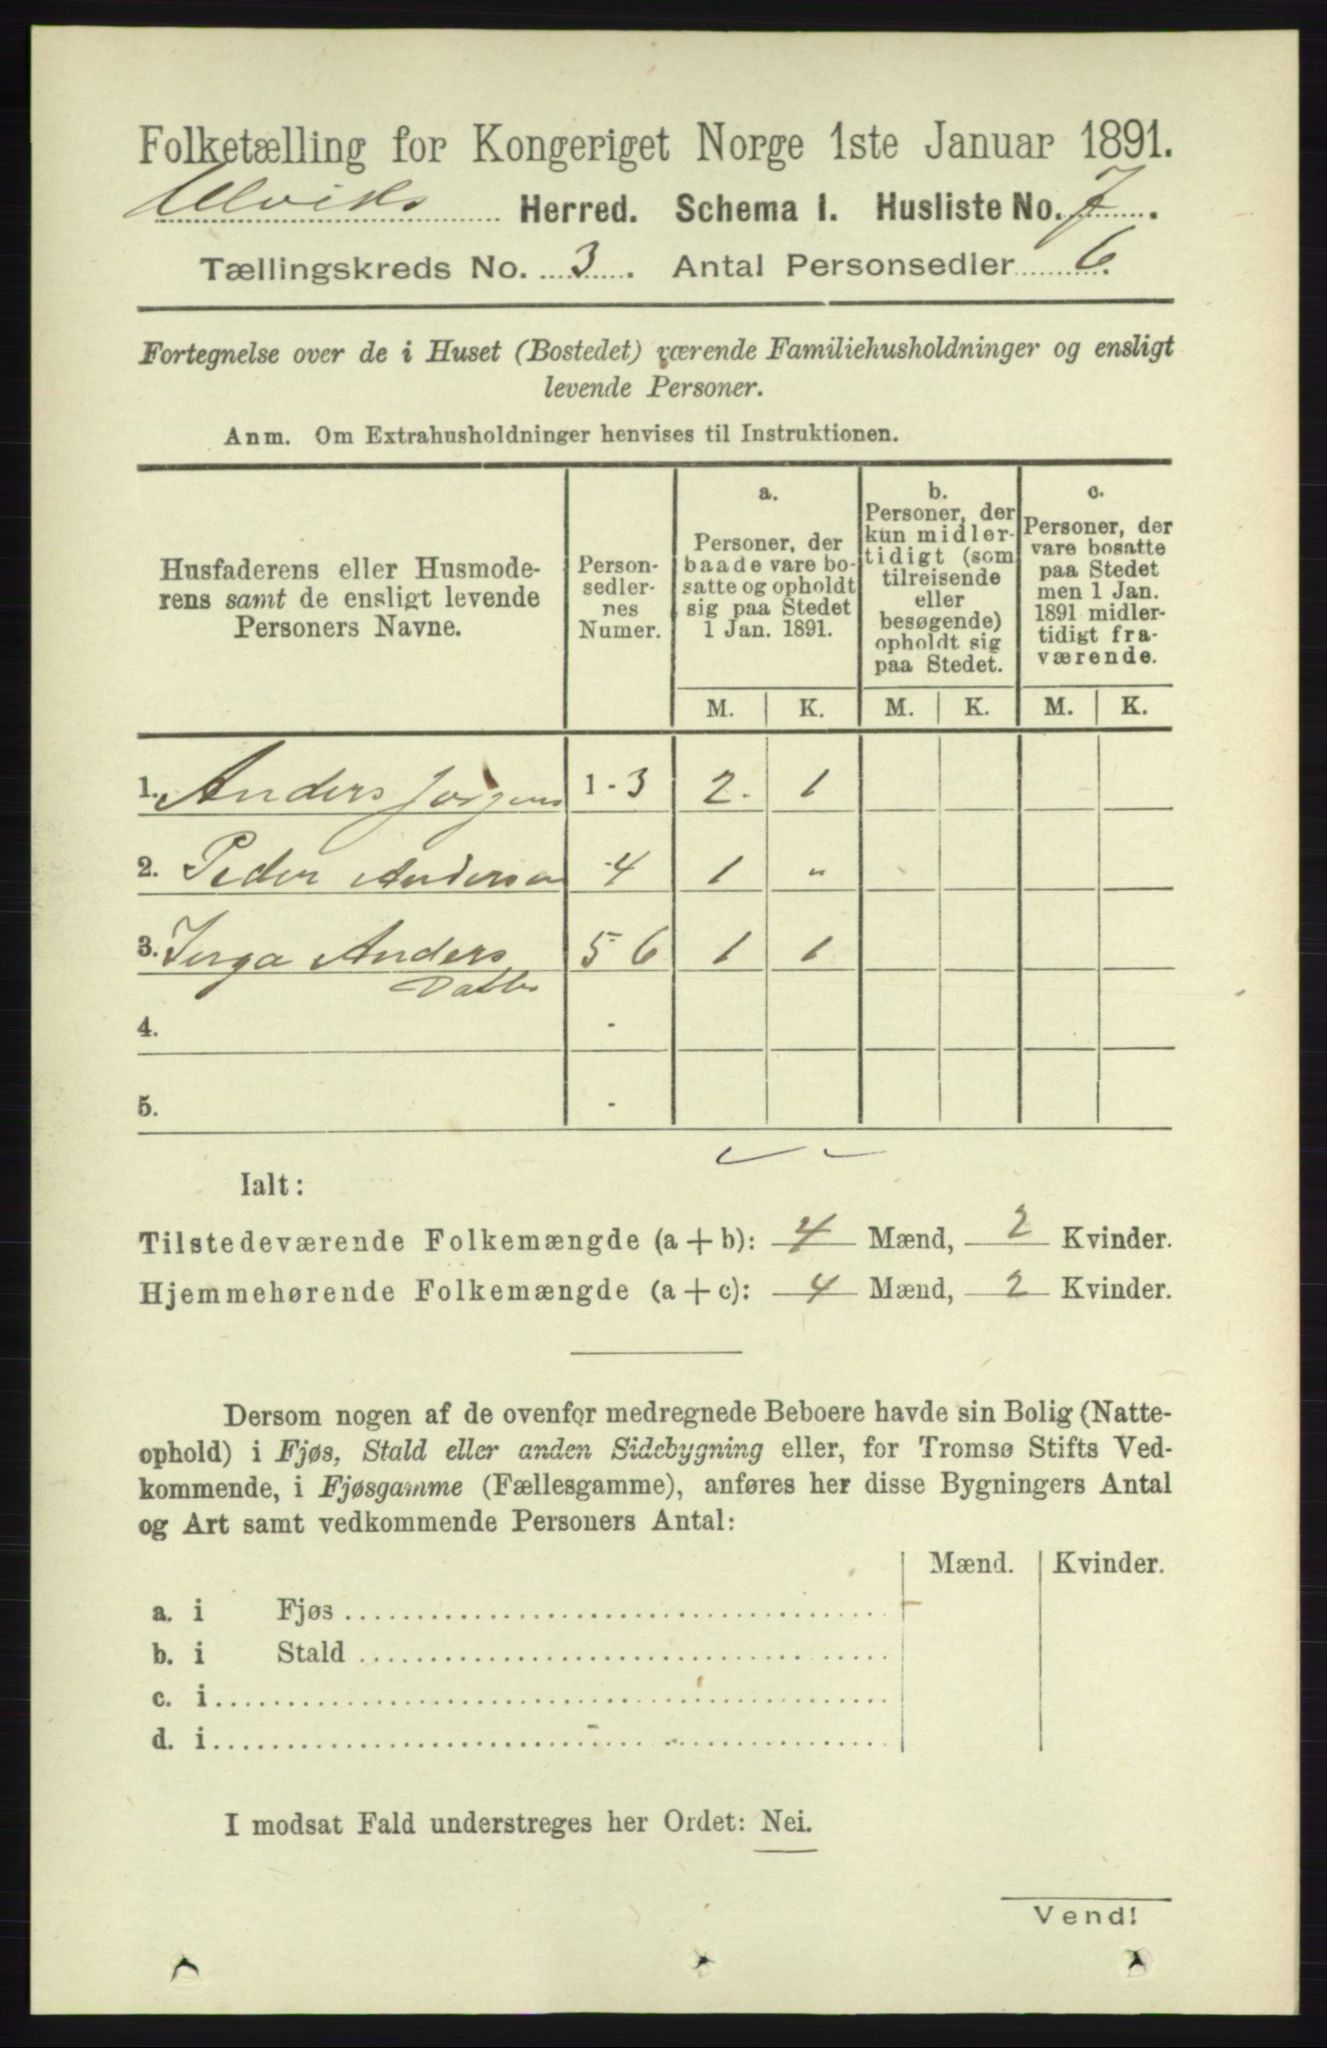 Folketælling for Kongeriget Norge 1ste Januar 1891.
Ulviks Herred. Schema I. Husliste No. 7.
Tællingskreds No. 3. Antal Personsedler 6.
Fortegnelse over de i Huset (Bostedet) værende Familiehusholdninger og ensligt
levende Personer.
Anm. Om Extrahusholdninger henvises til Instruktionen.
Husfaderens eller Husmode-
rens samt de ensligt levende
Personers Navne.
Person-
sedler-
nes
Numer.
a.
Personer, der
baade vare bo-
satte og opholdt
sig paa Stedet
1 Jan. 1891.
b.
Personer, der
kun midler-
tidigt (som
tilreisende
eller
besøgende)
opholdt sig
paa Stedet.
c.
Personer, der
vare bosatte
paa Stedet
men 1 Jan.
1891 midler-
tidigt fra-
værende.
M. K. M. K. M. K.
1. Anders Jørgens 1-3 2. 1
2. Peder Anderson 4 1 "
3. Inga Anders 5 6 1 1
Datter
4. -
5. -
Ialt:
Tilstedeværende Folkemængde (a+b): 4 Mænd, 2 Kvinder.
Hjemmehørende Folkemængde (a+c): 4 Mænd, 2 Kvinder.
Dersom nogen af de ovenfor medregnede Beboere havde sin Bolig (Natte-
ophold) i Fjøs, Stald eller anden Sidebygning eller, for Tromsø Stifts Ved-
kommende, i Fjøsgamme (Fællesgamme), anføres her disse Bygningers Antal
og Art samt vedkommende Personers Antal:
Mænd. Kvinder.
a. i Fjøs
b. i Stald
c. i
d. i
I modsat Fald understreges her Ordet: Nei.
Vend!